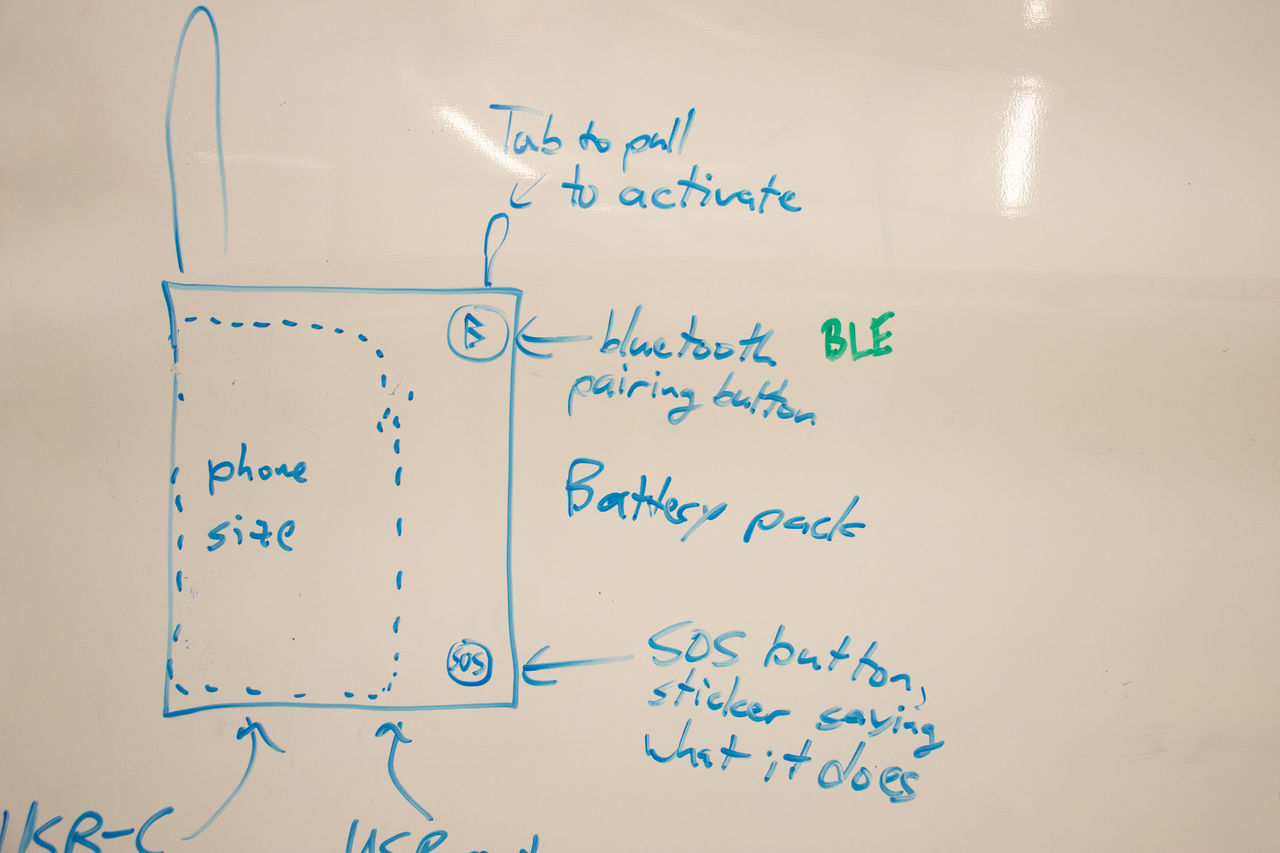 Tab to pull
to activate
bluetooth BLE
pairing button
phone
size
Battery pack
SOS
SOS button,
sticker saying
what it does
USB-C
USB